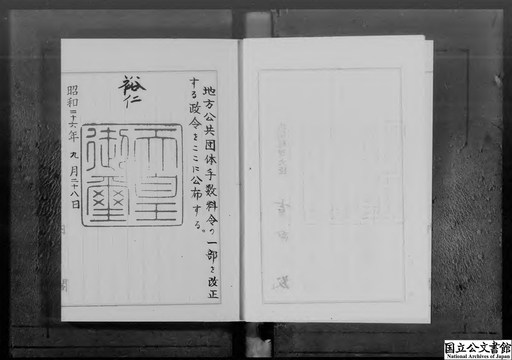 地方公共団体手数料令の一部を改正
する政令をここに公布する。
裕仁
天皇御璽
昭和二十六年九月二十八日
国立公文書館
National Archives of Japan